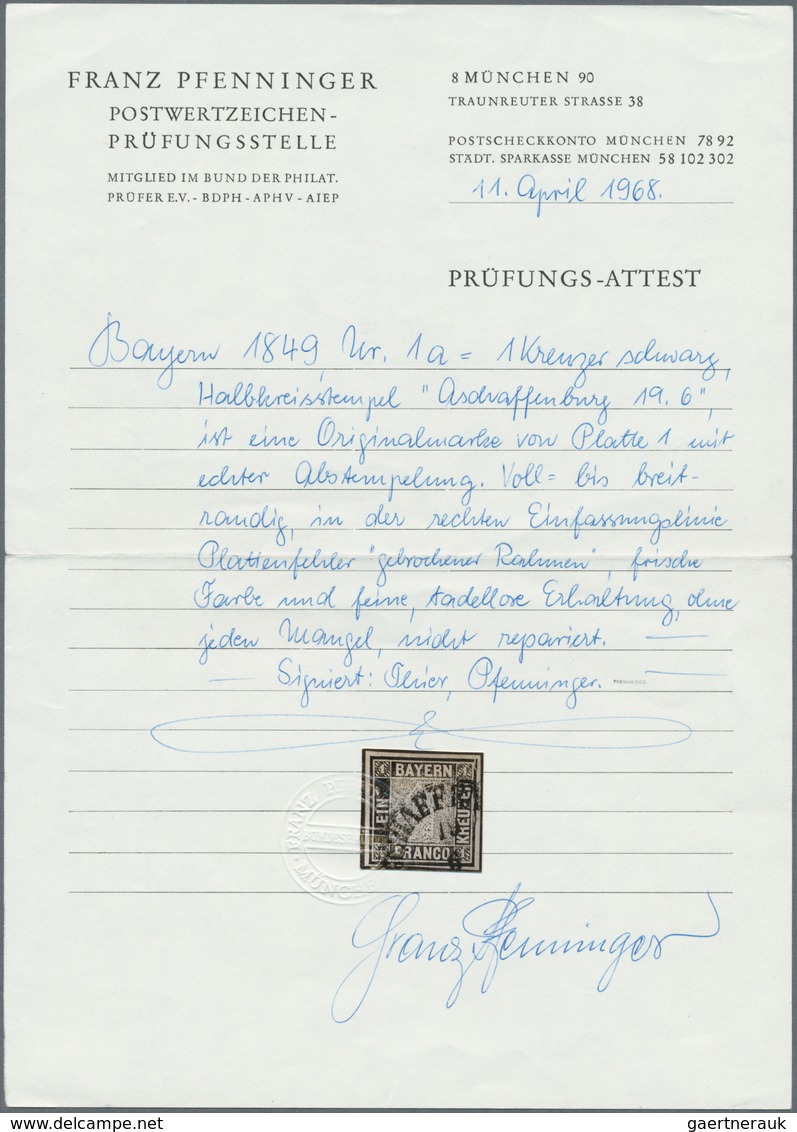 FRANZ PFENNINGER
POSTWERTZEICHEN-
PRÜFUNGSSTELLE
MITGLIED IM BUND DER PHILAT.
PRÜFER E.V. - BDPH - APHV - AIEP
8 MÜNCHEN 90
TRAUNREUTER STRASSE 38
POSTSCHECKKONTO MÜNCHEN 78 92
STÄDT. SPARKASSE MÜNCHEN 58 102 302
11. April 1968.
PRÜFUNGS-ATTEST
Bayern 1849, Nr. 1a = 1 Kreuzer schwarz,
Halbkreisstempel "Aschaffenburg 19. 6",
ist eine Originalmarke von Platte 1 mit
echter Abstempelung. Voll= bis breit-
randig, in der rechten Einfassungslinie
Plattenfehler "gebrochener Rahmen", frische
Farbe und feine, tadellose Erhaltung, ohne
jeden Mangel, nicht repariert. —
— Signiert: Thier, Pfenninger. PFENNINGER —
BAYERN
EINS
KREUZER
FRANCO
HAFFE
FRANZ PF
MÜNCHE
Franz Pfenninger
gaertnerauk